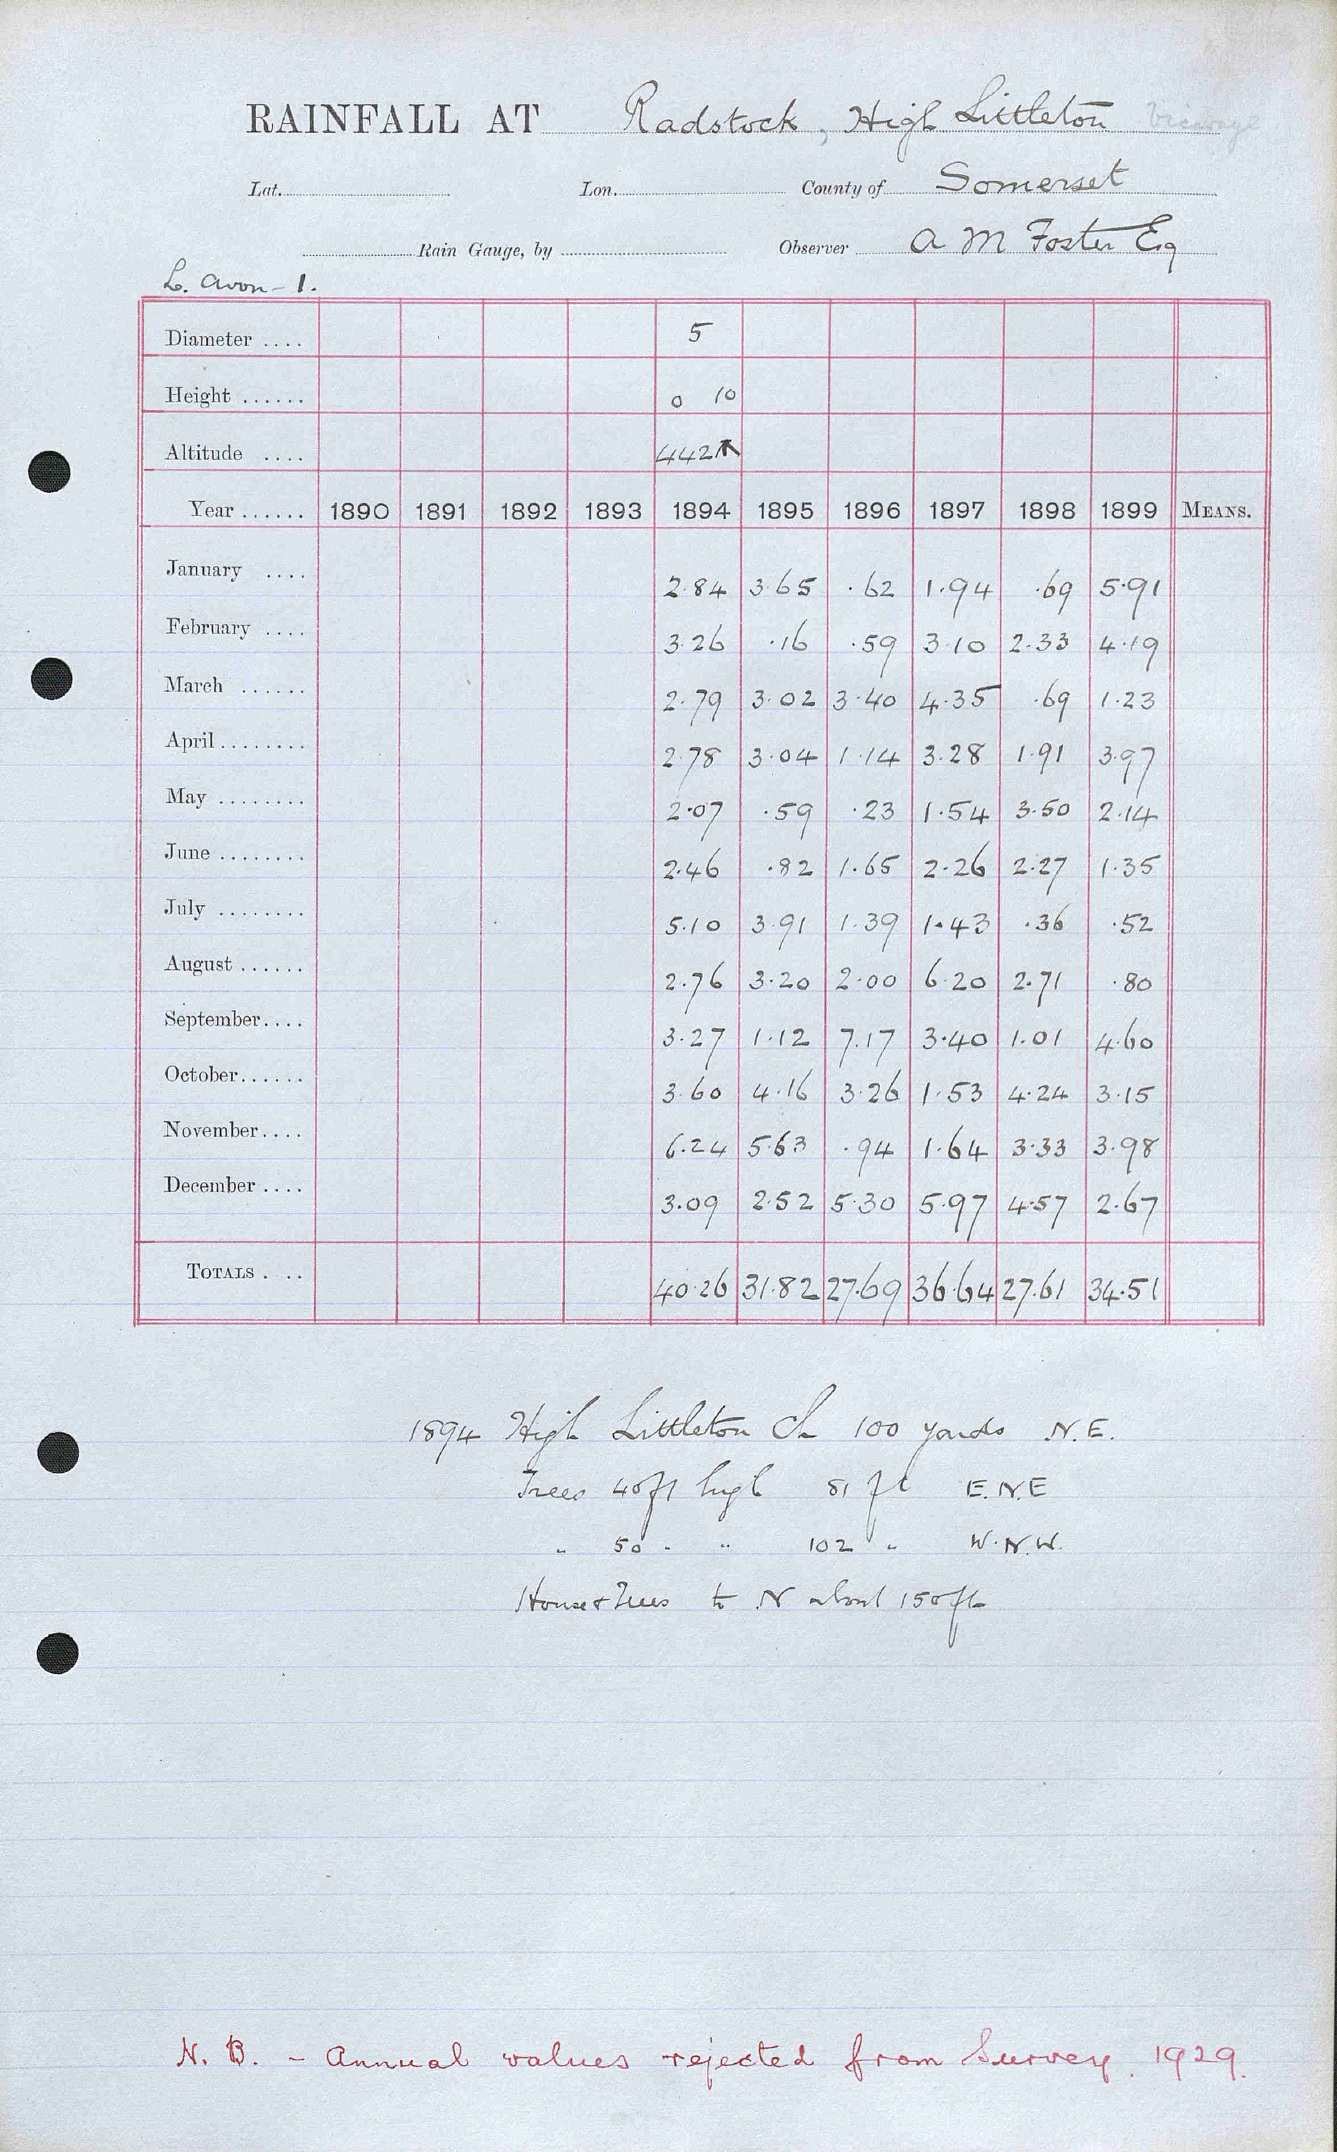 RAINFALL AT Radstock, High Littleton Vicarage
Lat. Lon. County of Somerset
Rain Gauge, by Observer A M Foster Esq
L. Avon - 1.
Diameter .... 5
Height ...... 0 10
Altitude .... 442
Year ...... 1890 1891 1892 1893 1894 1895 1896 1897 1898 1899 MEANS.
January .... 2.84 3.65 .62 1.94 .69 5.91
February .... 3.26 .16 .59 3.10 2.33 4.19
March ...... 2.79 3.02 3.40 4.35 .69 1.23
April ........ 2.78 3.04 1.14 3.28 1.91 3.97
May ........ 2.07 .59 .23 1.54 3.50 2.14
June ........ 2.46 .82 1.65 2.26 2.27 1.35
July ........ 5.10 3.91 1.39 1.43 .36 .52
August ...... 2.76 3.20 2.00 6.20 2.71 .80
September .... 3.27 1.12 7.17 3.40 1.01 4.60
October ...... 3.60 4.16 3.26 1.53 4.24 3.15
November .... 6.24 5.63 .94 1.64 3.33 3.98
December .... 3.09 2.52 5.30 5.97 4.57 2.67
TOTALS . .. 40.26 31.82 27.69 36.64 27.61 34.51
1894 High Littleton Ch 100 yards N.E.
Trees 40ft high 81 ft E.N.E
" 50 " " 102 " W.N.W.
House & Trees to N about 150 ft
N. B. - Annual values rejected from Survey. 1929.